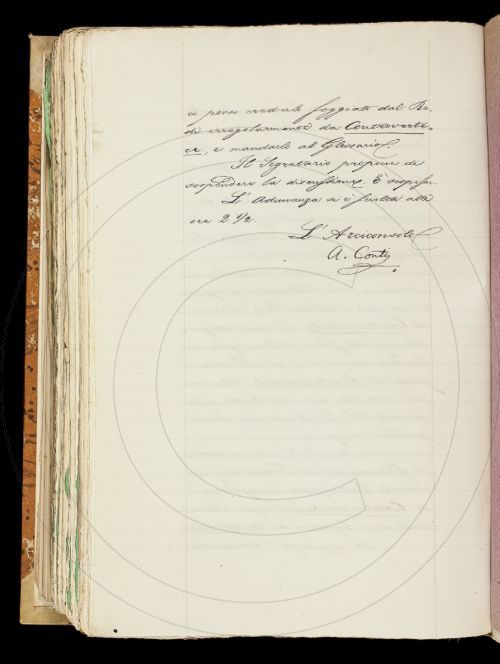 si possa crederla foggiata dal Re-
di irregolarmente da Controverte-
re, e mandarla al Glossario.
Il Segretario propone di
sospendere la discussione. È sospesa.
L'Adunanza si è sciolta alle
ore 2 1/2.
L'Arciconsolo
A. Conti